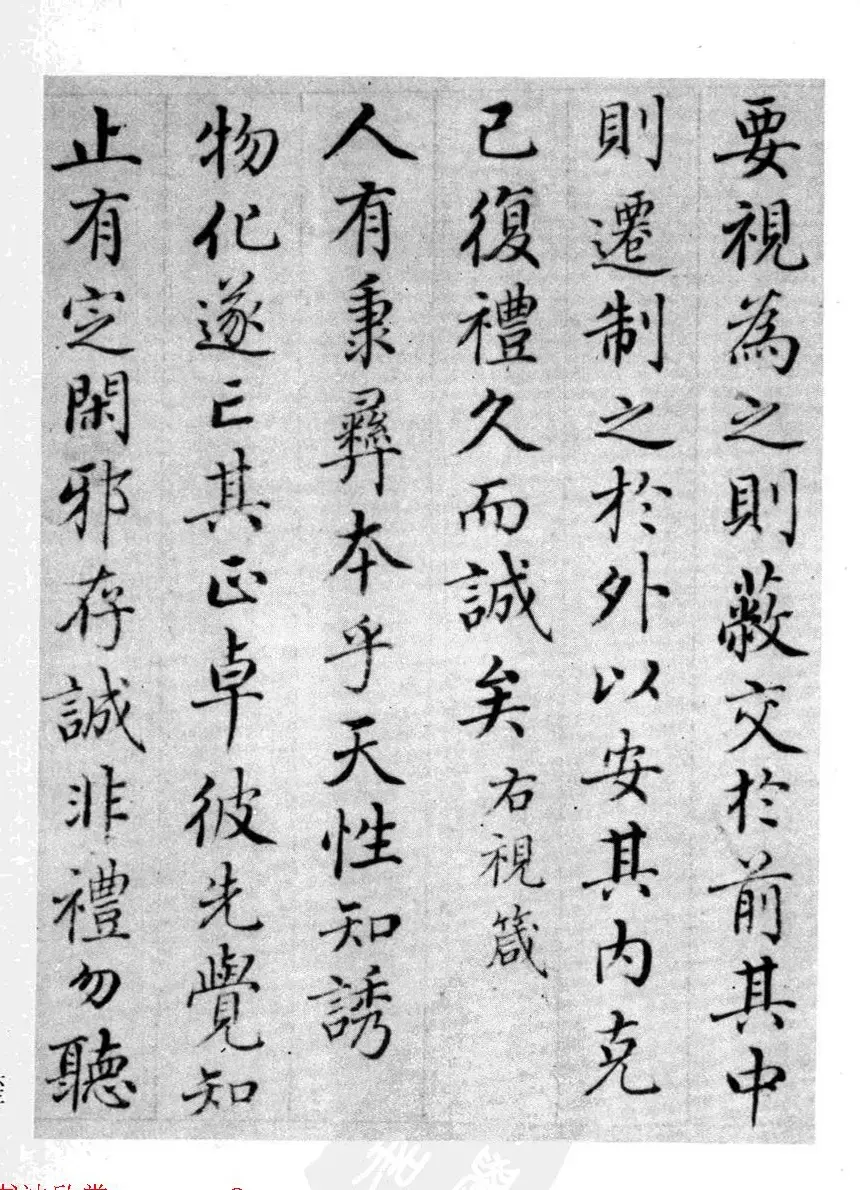 要視為之則蔽交於前其中
則遷制之於外以安其内克
己復禮久而誠矣右視箴
人有秉彝本乎天性知誘
物化遂亡其正卓彼先覺知
止有定閑邪存誠非禮勿聽